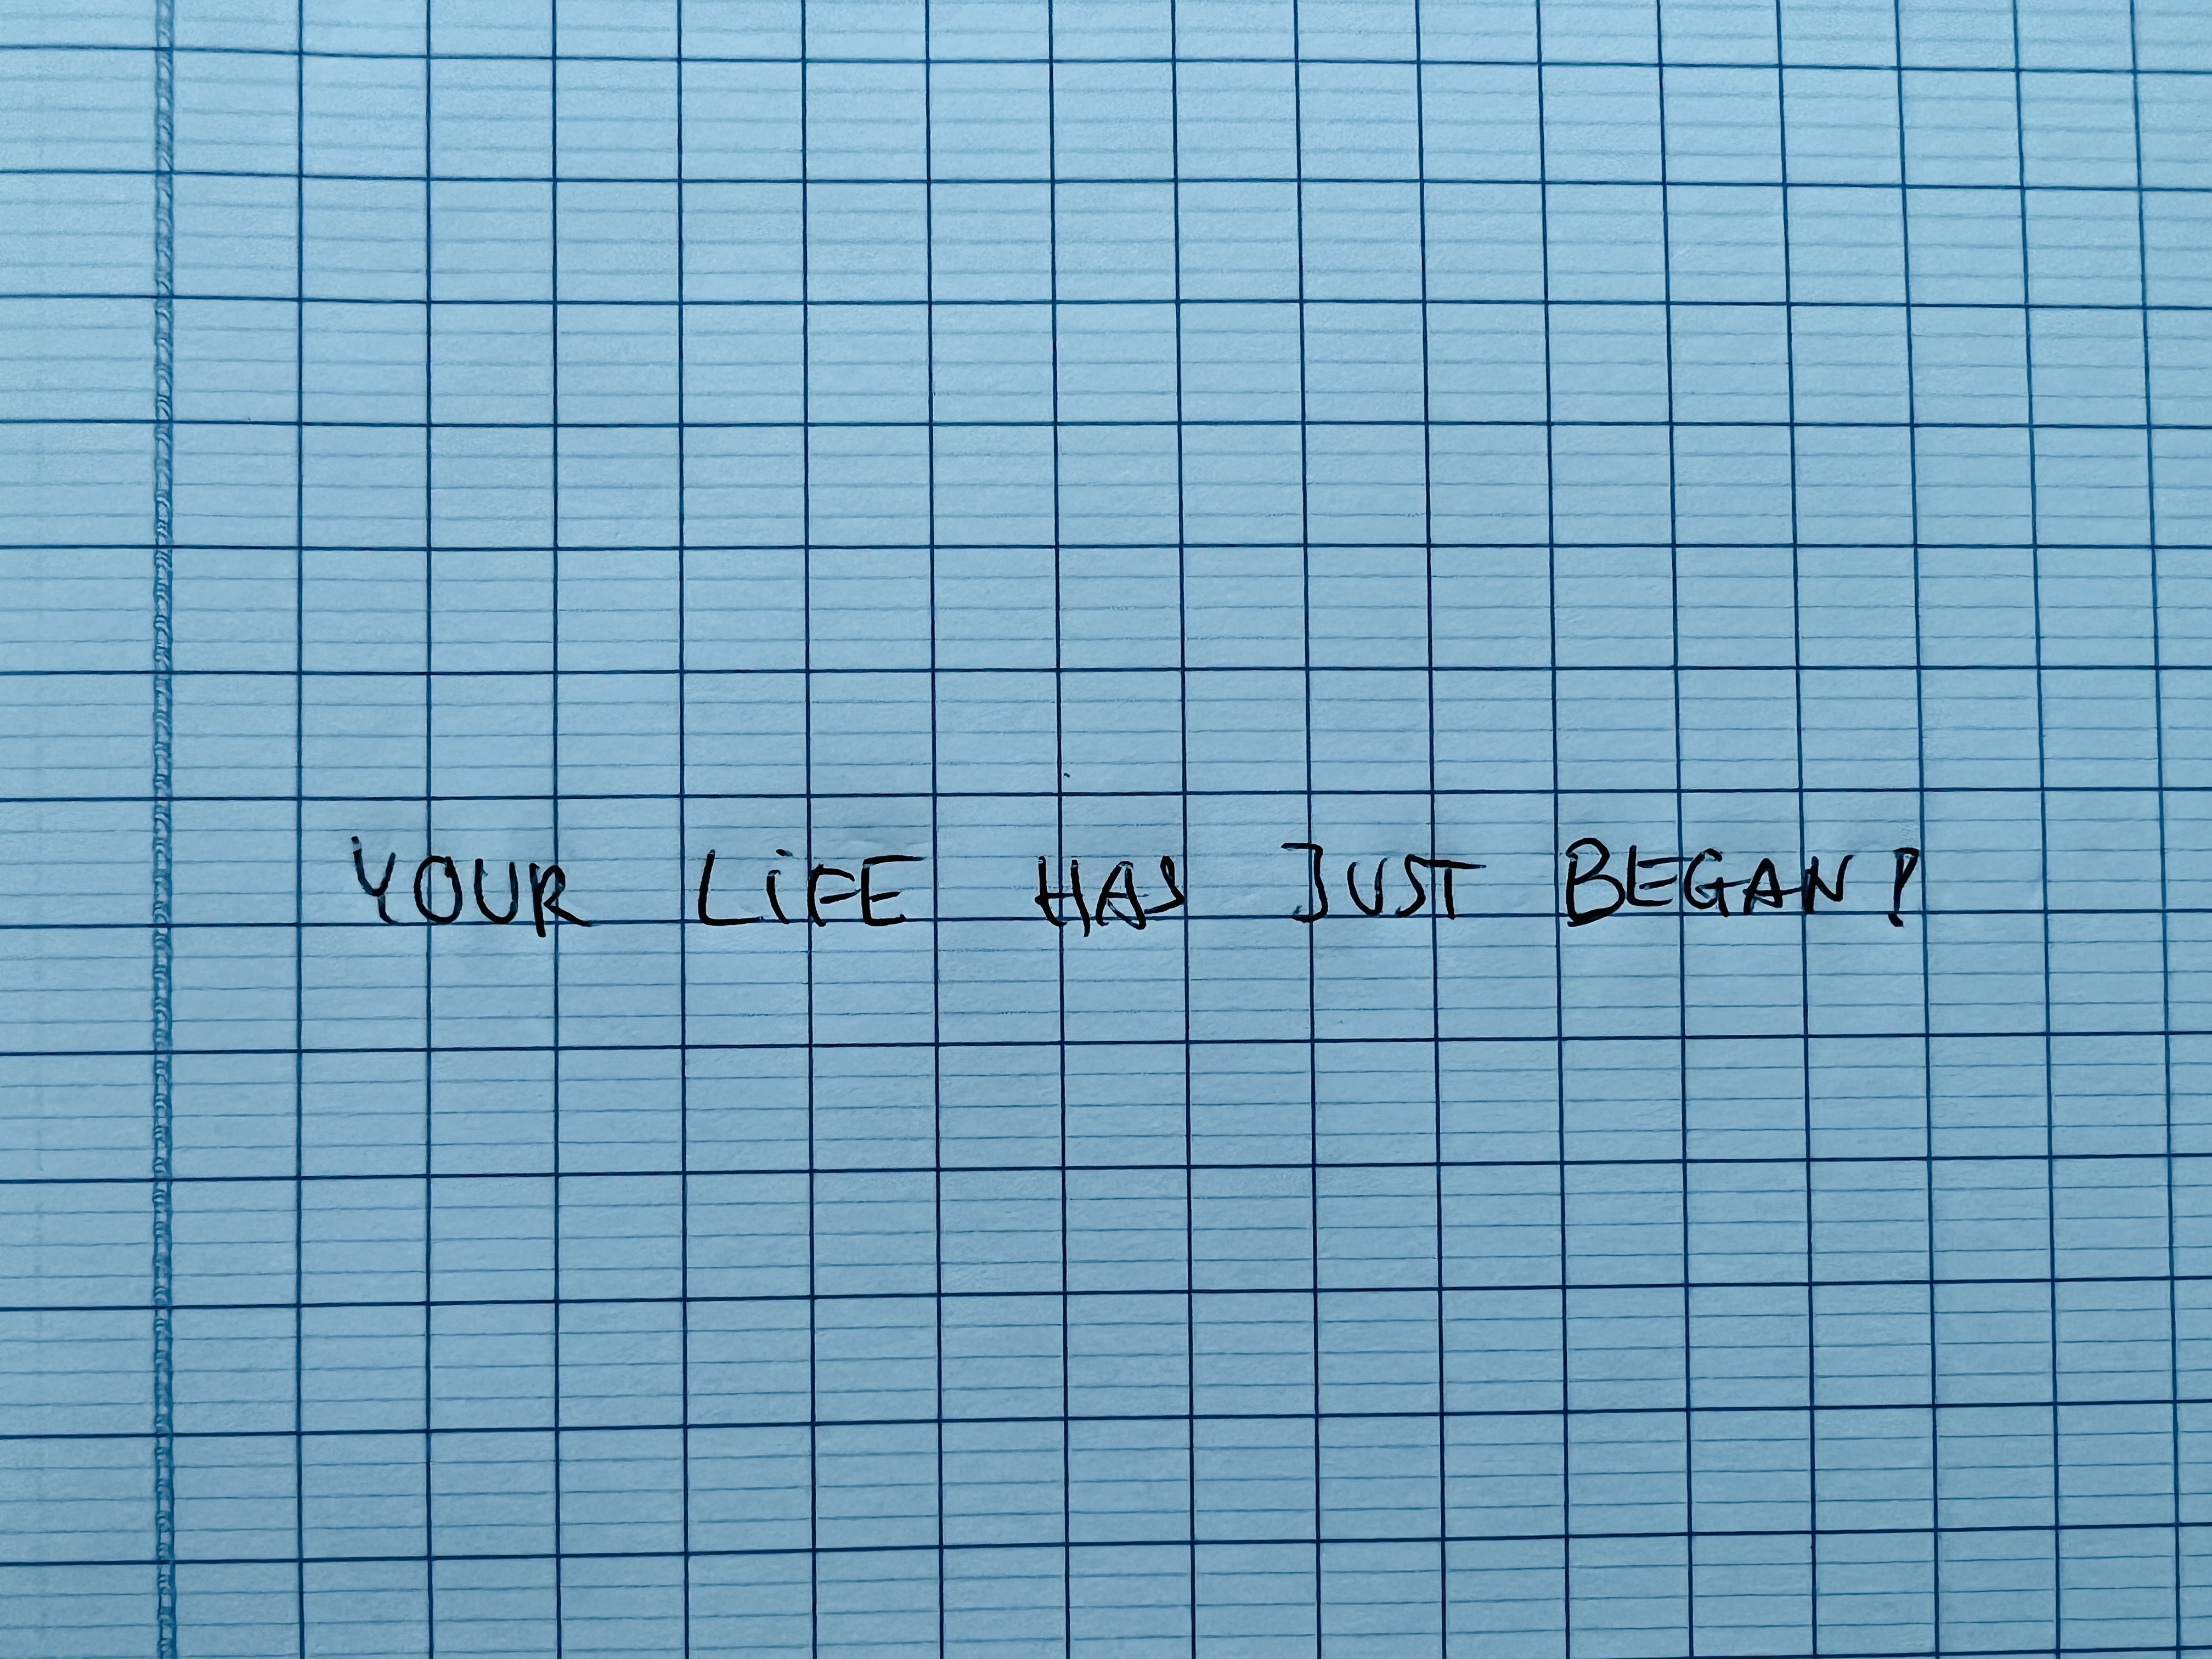 YOUR LiFE HAS JUST BEGAN!